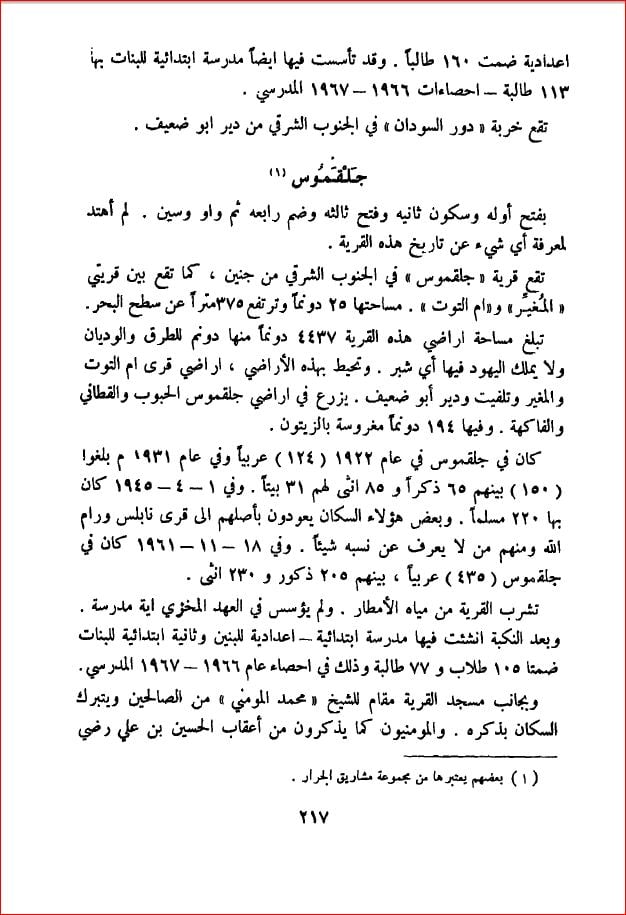 اعدادية ضمت ١٦٠ طالباً . وقد تأسست فيها ايضاً مدرسة ابتدائية للبنات بها
١١٣ طالبة – احصاءات ١٩٦٦ – ١٩٦٧ المدرسي .
تقع خربة « دور السودان » في الجنوب الشرقي من دير ابو ضعيف .
جَلْقَمُوس (١)
بفتح أوله وسكون ثانيه وفتح ثالثه وضم رابعه ثم واو وسين . لم أهتد
لمعرفة أي شيء عن تاريخ هذه القرية .
تقع قرية « جلقموس » في الجنوب الشرقي من جنين ، كما تقع بين قريتي
« المُغيِّر » و« ام التوت » . مساحتها ٢٥ دونماً وترتفع ٣٧٥ متراً عن سطح البحر.
تبلغ مساحة اراضي هذه القرية ٤٤٣٧ دونماً منها دونم للطرق والوديان
ولا يملك اليهود فيها أي شبر . وتحيط بهذه الأراضي ، اراضي قرى ام التوت
والمغير وتلفيت ودير أبو ضعيف . يزرع في اراضي جلقموس الحبوب والقطاني
والفاكهة . وفيها ١٩٤ دونماً مغروسة بالزيتون .
كان في جلقموس في عام ١٩٢٢ ( ١٢٤ ) عربياً وفي عام ١٩٣١ م بلغوا
( ١٥٠ ) بينهم ٦٥ ذكراً و ٨٥ انثى لهم ٣١ بيتاً . وفي ١ – ٤ – ١٩٤٥ كان
بها ٢٢٠ مسلماً . وبعض هؤلاء السكان يعودون بأصلهم الى قرى نابلس ورام
الله ومنهم من لا يعرف عن نسبه شيئاً . وفي ١٨ – ١١ – ١٩٦١ كان في
جلقموس ( ٤٣٥ ) عربياً ، بينهم ٢٠٥ ذكور و ٢٣٠ انثى .
تشرب القرية من مياه الأمطار . ولم يؤسس في العهد المخزي اية مدرسة .
وبعد النكبة انشئت فيها مدرسة ابتدائية – اعدادية للبنين وثانية ابتدائية للبنات
ضمتا ١٠٥ طلاب و ٧٧ طالبة وذلك في احصاء عام ١٩٦٦ – ١٩٦٧ المدرسي.
وبجانب مسجد القرية مقام للشيخ « محمد المومني » من الصالحين ويتبرك
السكان بذكره . والمومنيون كما يذكرون من أعقاب الحسين بن علي رضي
( ١ ) بعضهم يعتبرها من مجموعة مشاريق الجرار .
٢١٧